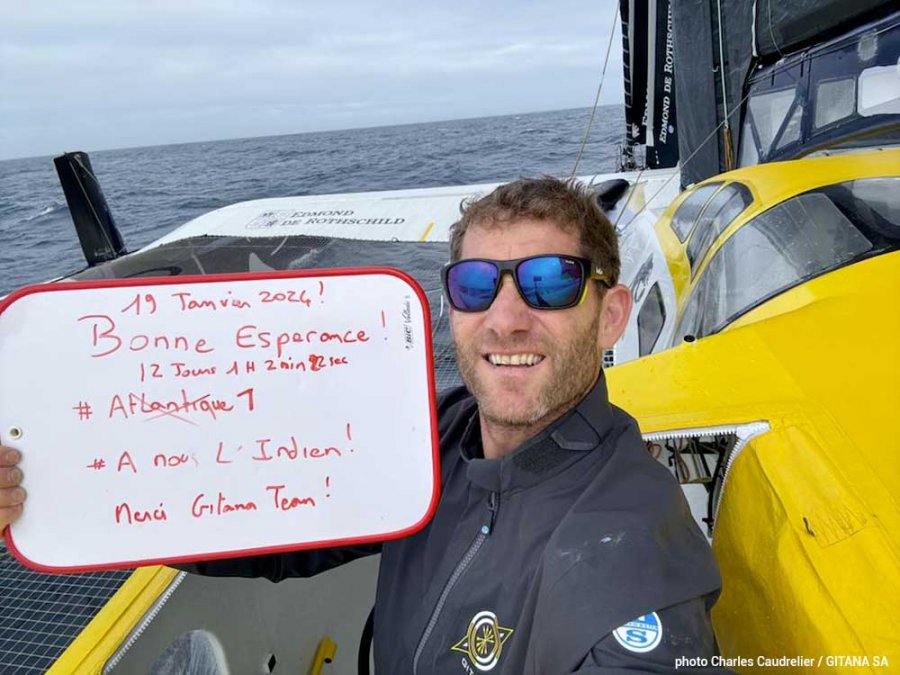 EDMOND DE ROTHSCHILD
EDMOND DE ROTHSCHILD
19 Janvier 2024!
Bonne Esperance!
12 Jours 1H 2min 22sec
# Atlantique 1
# A nous L'Indien!
Merci Gitana Team!
photo Charles Caudrelier / GITANA SA